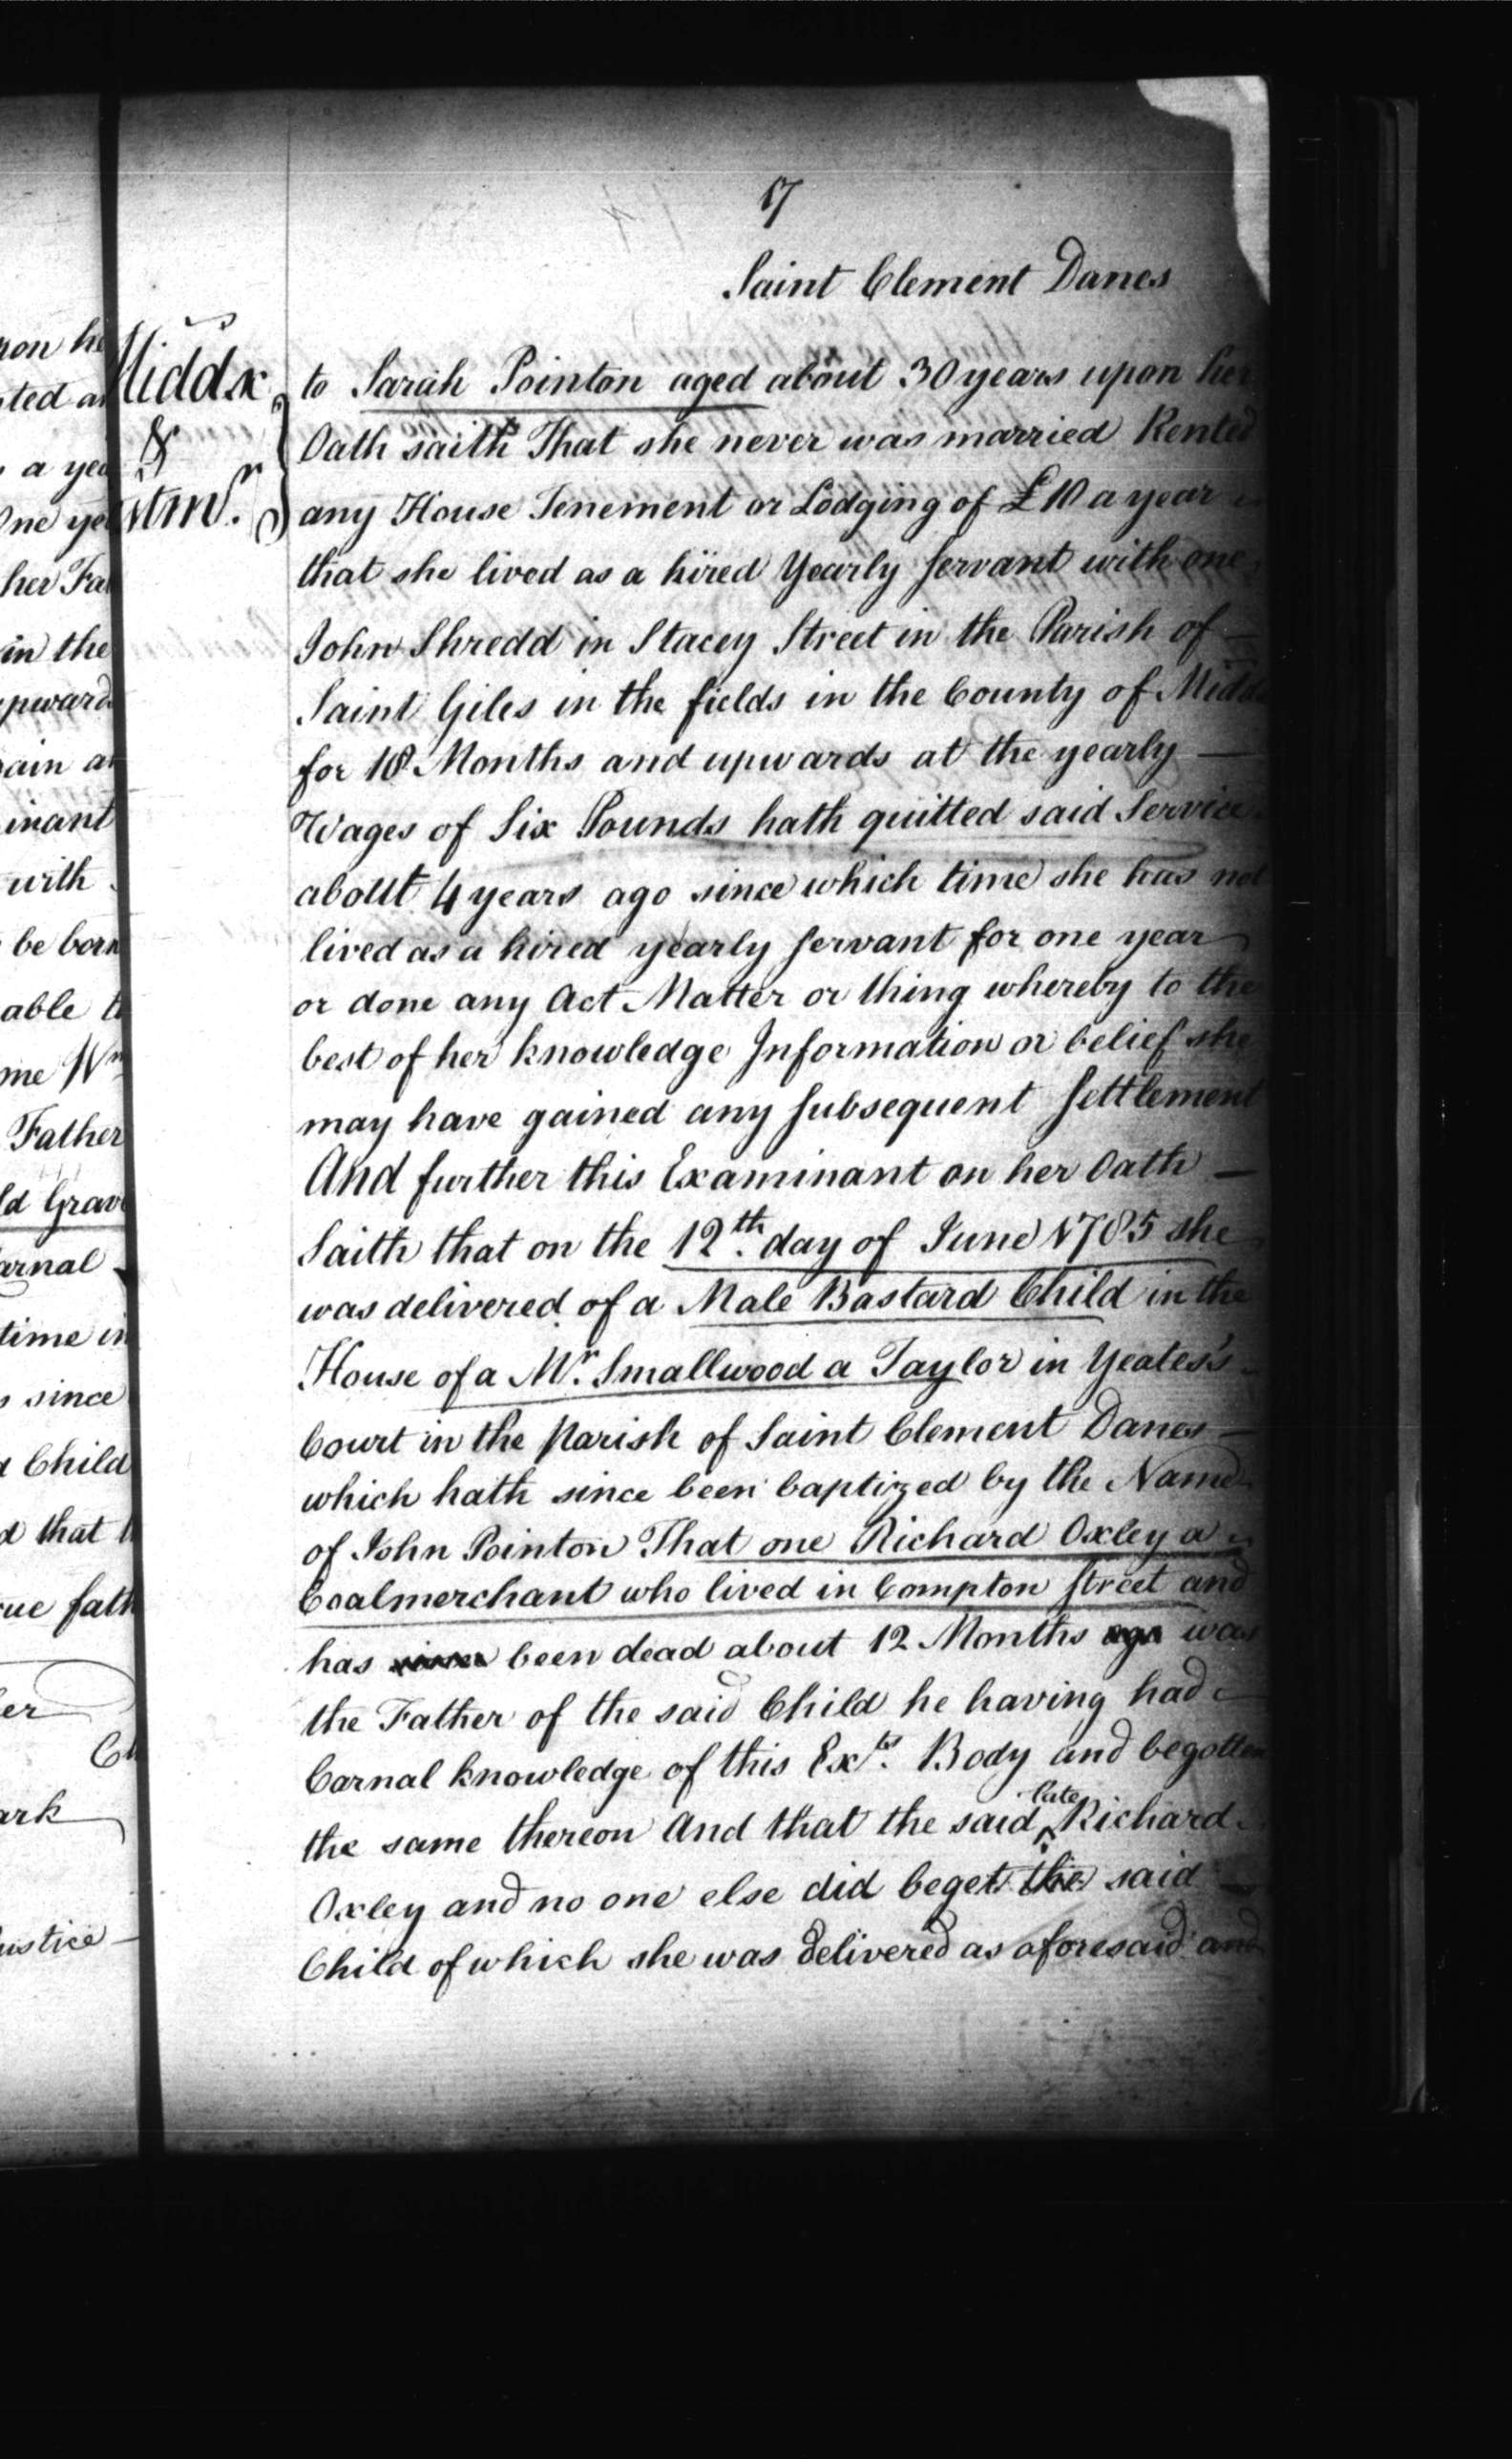 17
Saint Clement Danes
Middx
&
stmr.
to Sarah Pointon aged about 30 years upon her
Oath saith That she never was married Rented
any House Tenement or Lodging of £10 a year
that she lived as a hired Yearly servant with one
John Shredd in Stacey Street in the Parish of —
Saint Giles in the fields in the County of Middx
for 18 Months and upwards at the yearly —
Wages of Six Pounds hath quitted said Service
about 4 years ago since which time she has not
lived as a hired yearly servant for one year
or done any Act Matter or thing whereby to the
best of her knowledge Information or belief she
may have gained any subsequent settlement
And further this Examinant on her Oath —
Saith that on the 12th. day of June 1785 she
was delivered of a Male Bastard Child in the
House of a Mr. Smallwood a Taylor in Yeates's
Court in the Parish of Saint Clement Danes —
which hath since been baptized by the Name
of John Pointon That one Richard Oxley a
Coalmerchant who lived in Compton street and
has been dead about 12 Months ago was
the Father of the said Child he having had
Carnal knowledge of this Exts. Body and begotten
the same thereon And that the said late Richard
Oxley and no one else did beget the said —
Child of which she was delivered as aforesaid and
ron he
ted an
a yea
One yea
her Fat
in the
upwards
ain at
inant
with
be born
able to
me Wm
Father
ld Grave
arnal
time in
since
d Child
d that t
rue fath
er
ark
ustice —